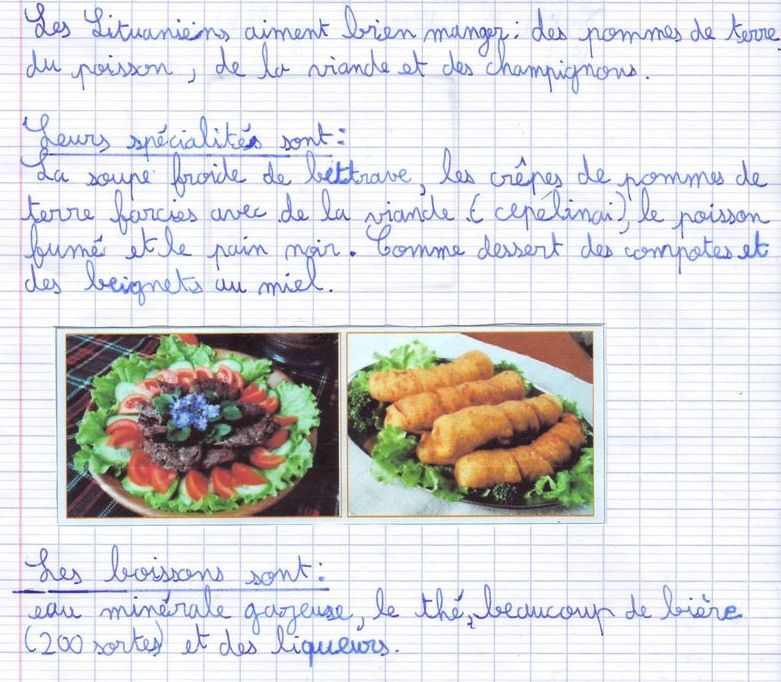 Les Lituaniens aiment bien manger : des pommes de terre
du poisson, de la viande et des champignons.
Leurs spécialités sont :
La soupe froide de bettrave, les crêpes de pommes de
terre farcies avec de la viande (cepelinai), le poisson
fumé et le pain noir. Comme dessert des compotes et
des beignets au miel.
Les boissons sont :
eau minérale gazeuse, le thé, beaucoup de bière
(200 sortes) et des liqueurs.